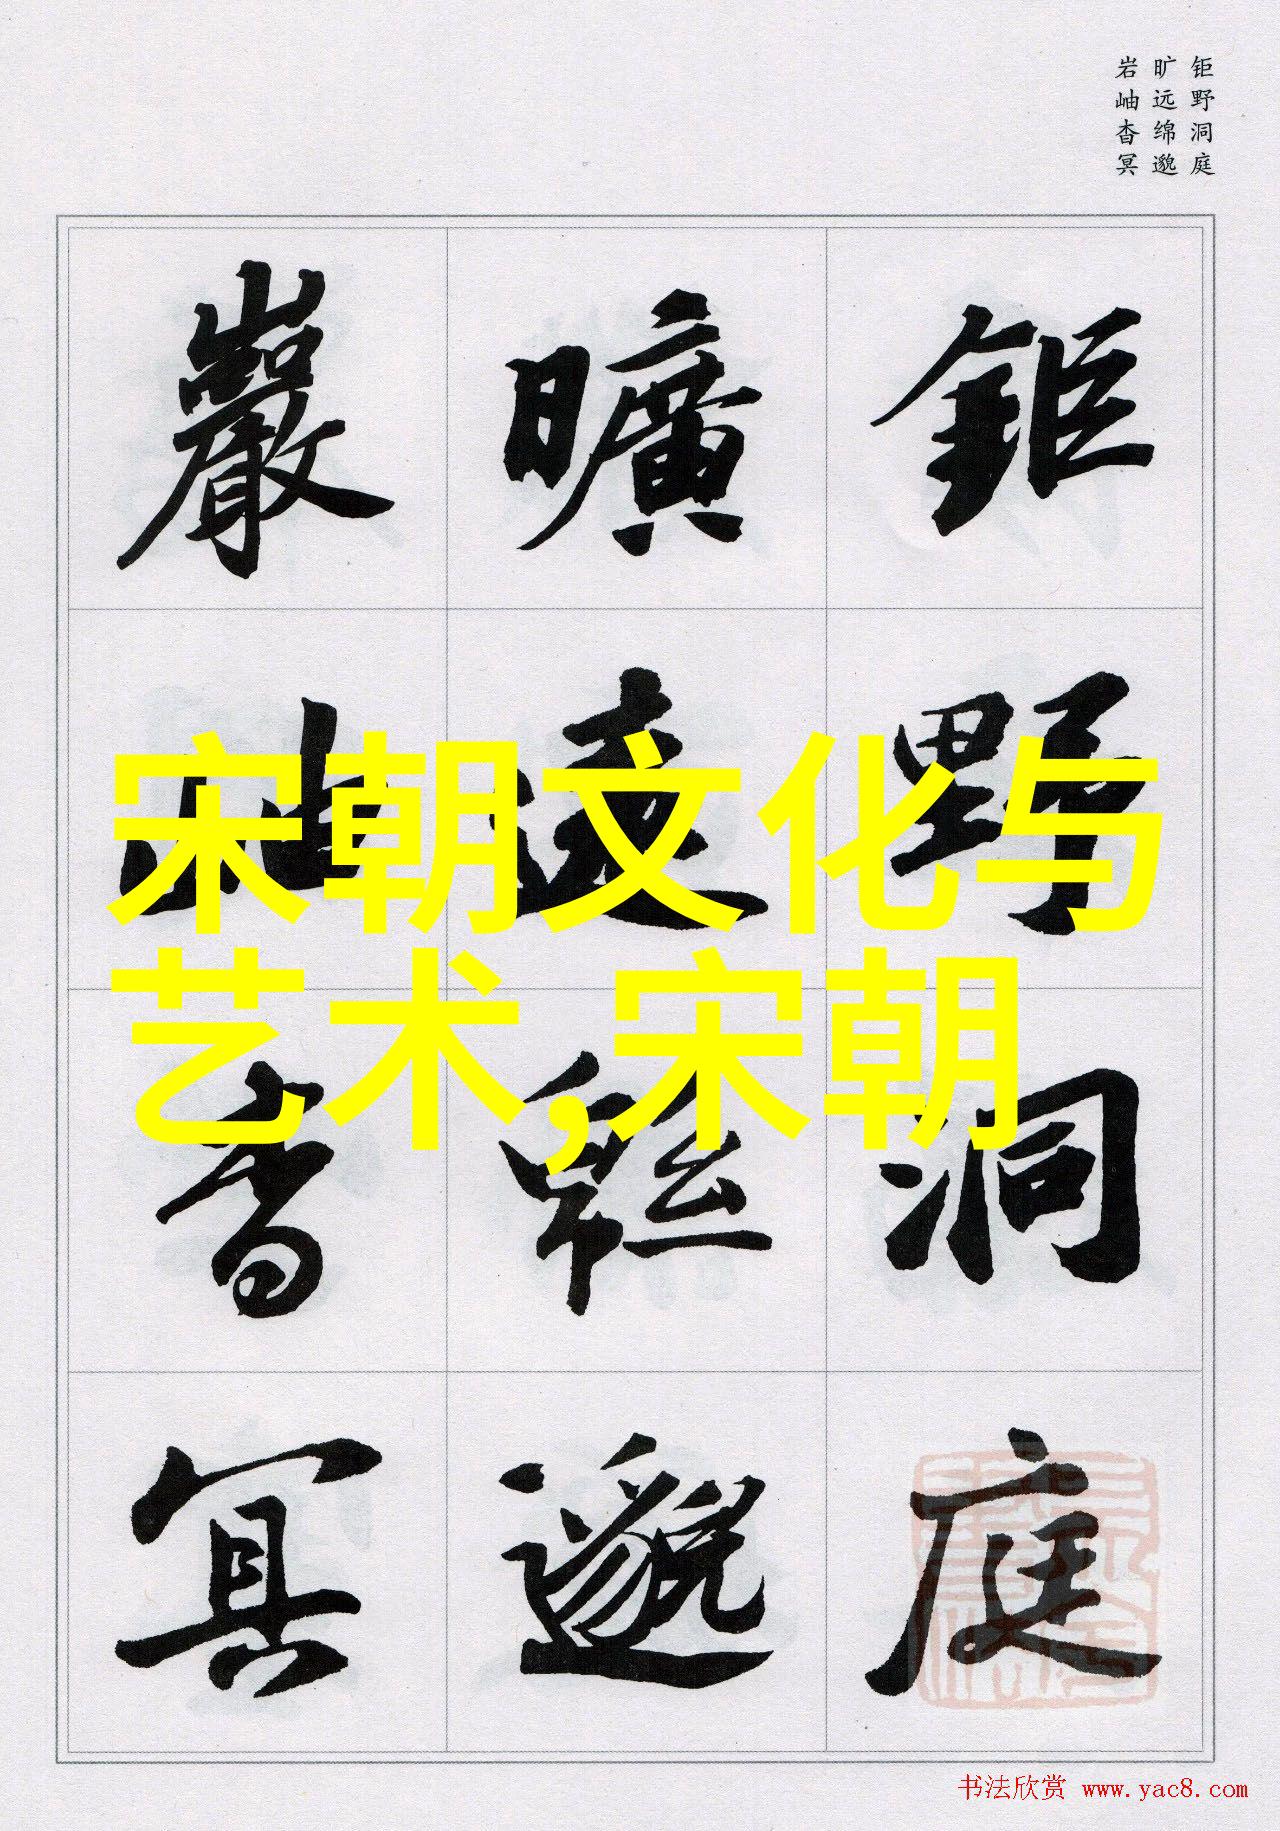 钜野洞庭
旷远绵邈
岩岫杳冥
鉅野洞庭
曠遠緜邈
巖岫杳冥
宋朝文化与
艺术,宋朝
书法欣赏 www.yac8.com